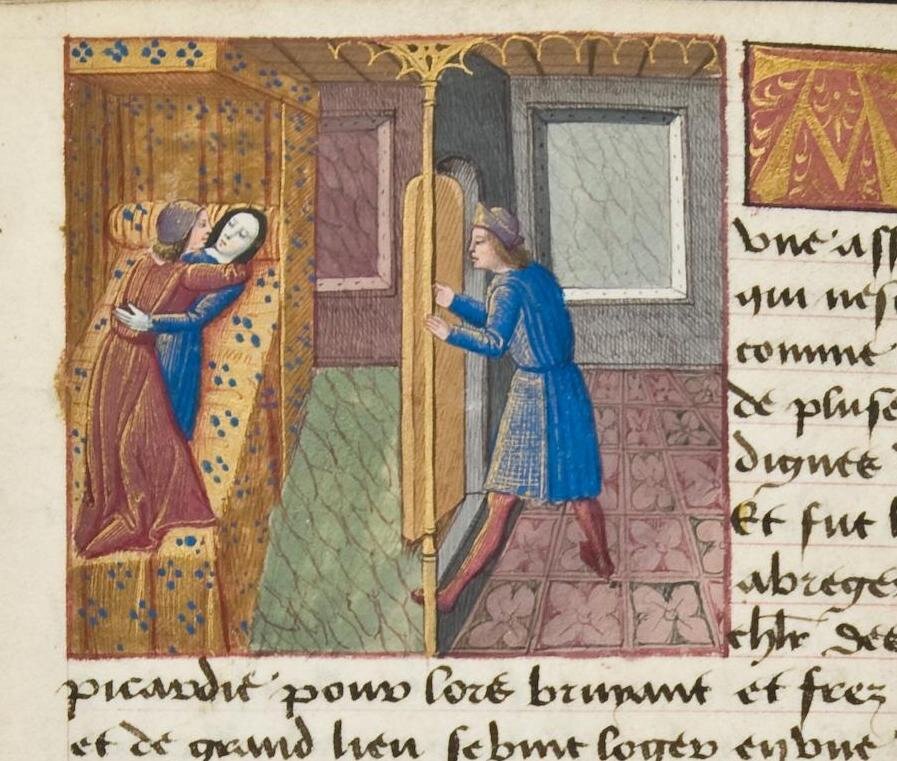 M
vne ass
qui nesc
comme
de pluse
dignes
Et fut l
abrege
chlr des
picardie pour lors bruyant et frez
et de grand lieu se vint loger en vne